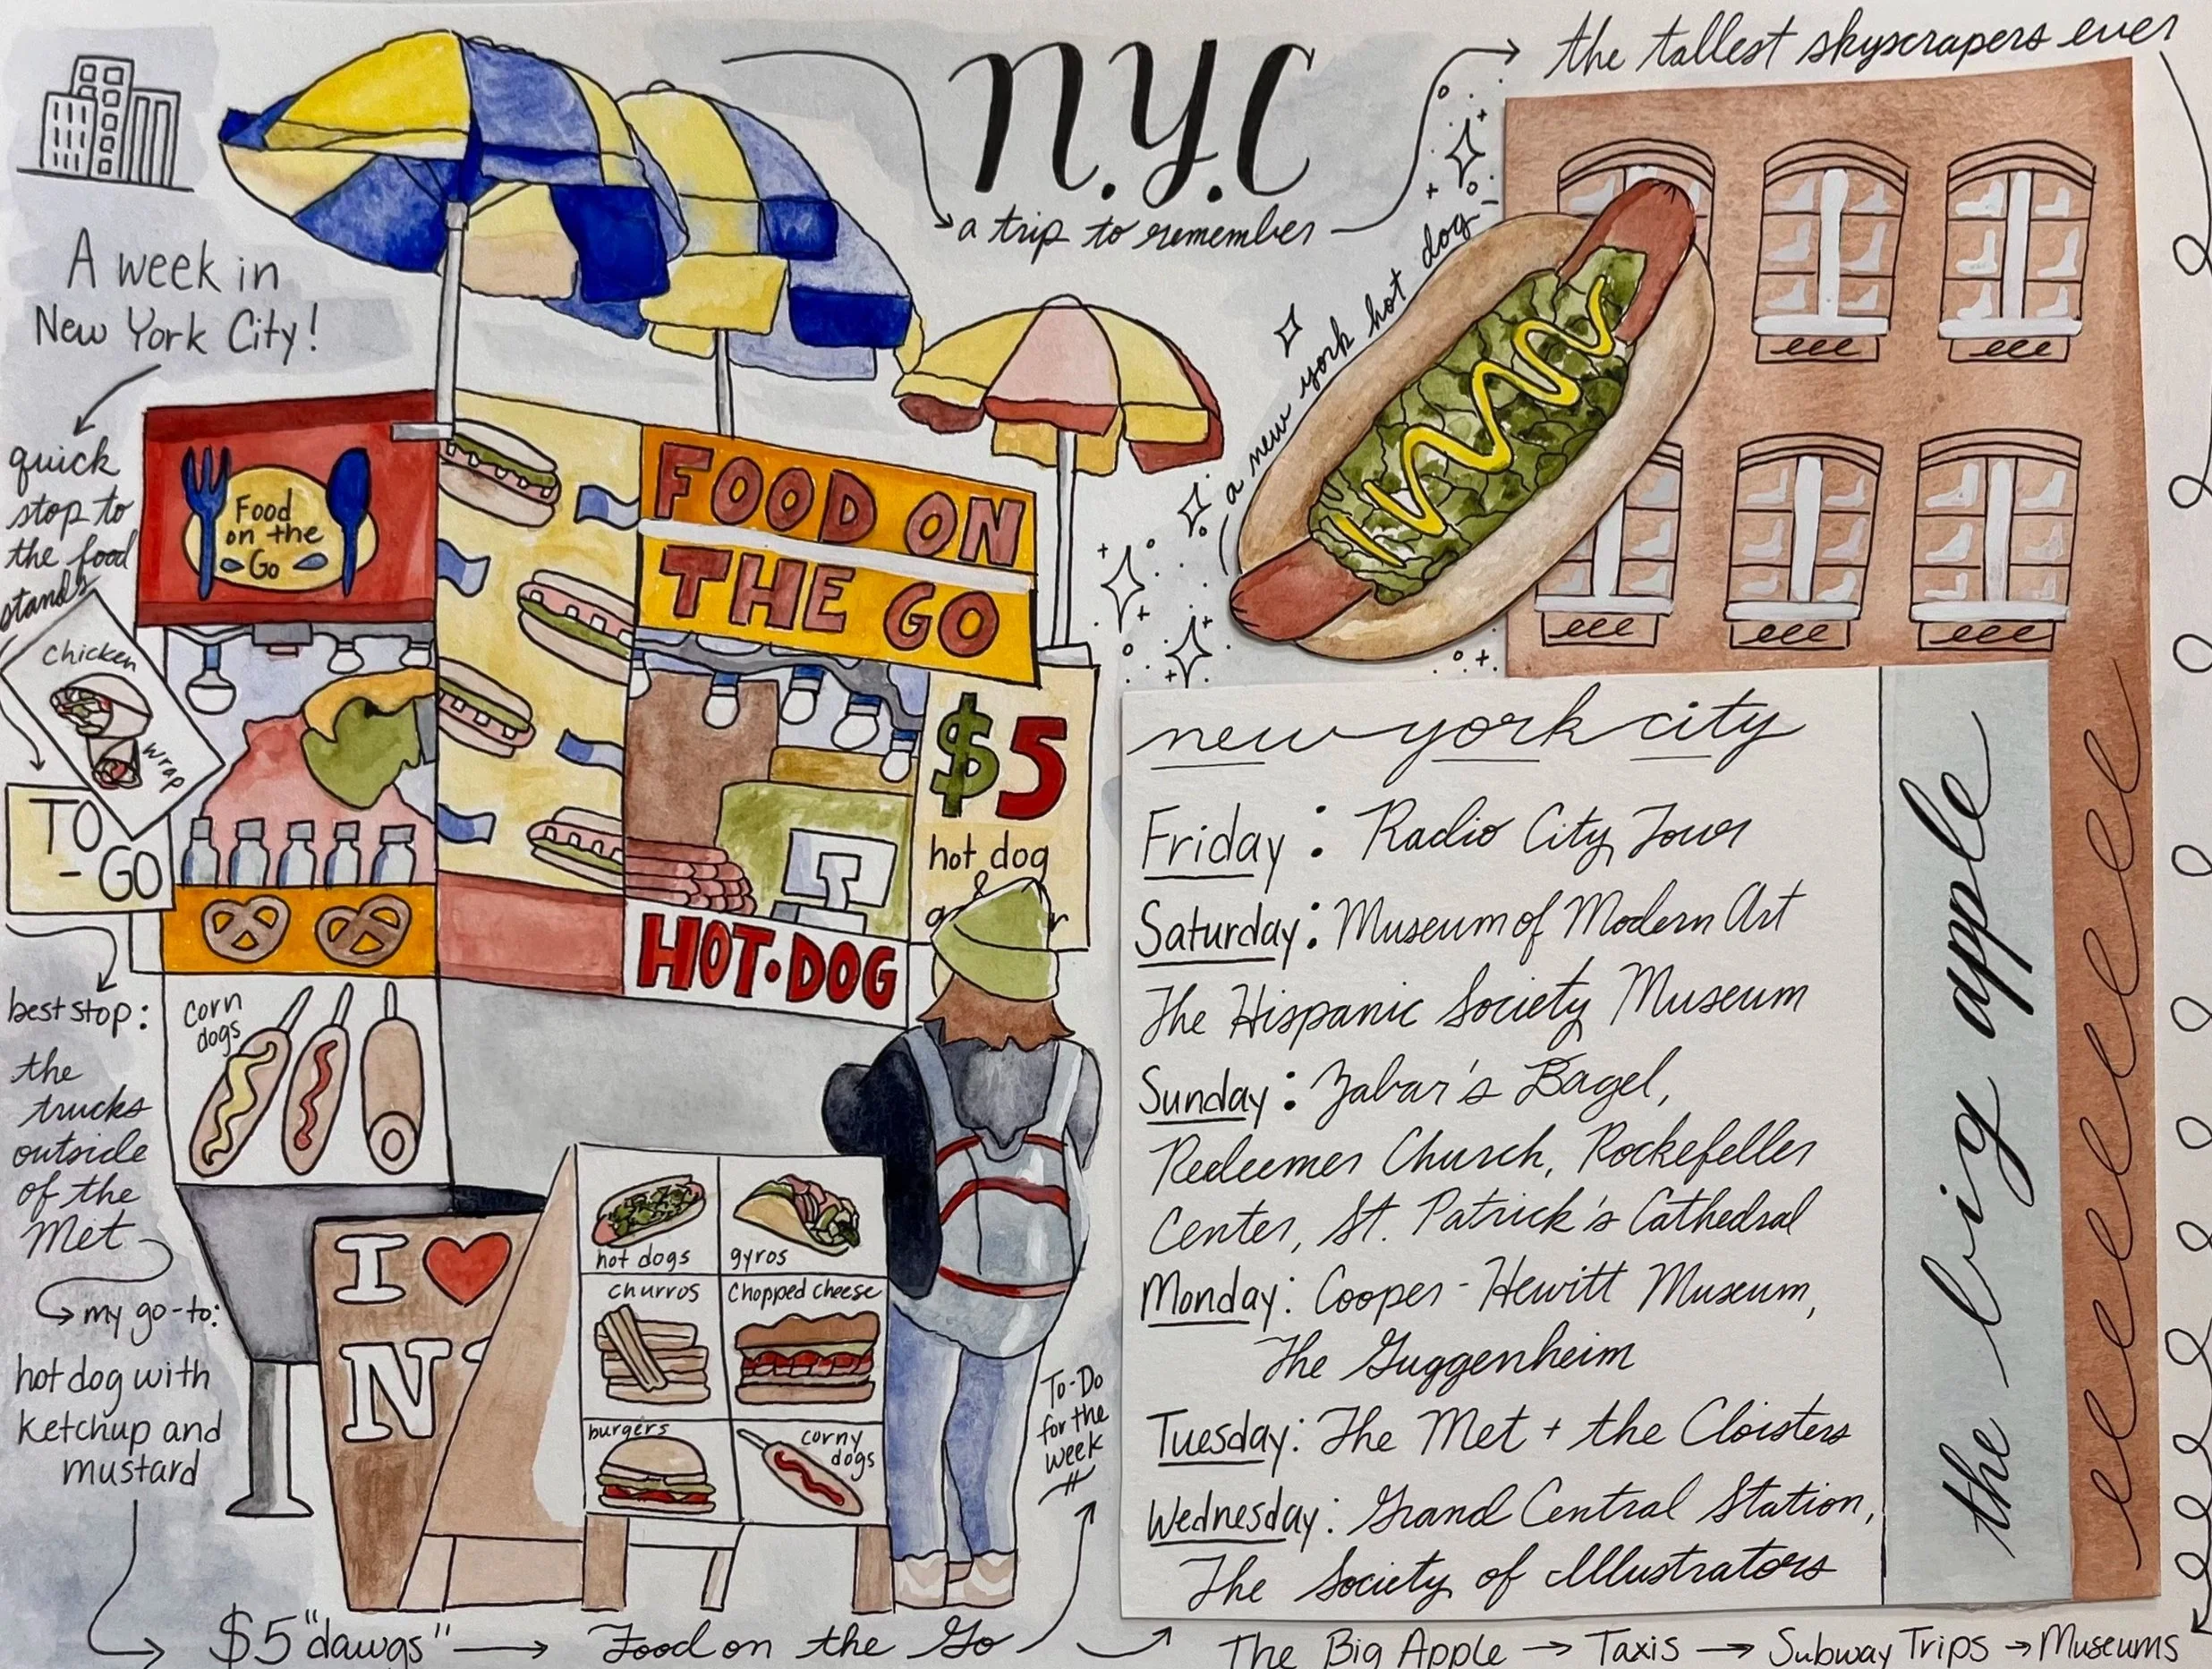 the tallest skyscrapers ever
N.Y.C
a trip to remember
a new york hot dog
A week in
New York City!
quick
stop to
the food
stands
Food
on the
Go
FOOD ON
THE GO
Chicken
wrap
TO
- GO
$5
hot dog
&
HOT•DOG
corn
dogs
best stop:
the
trucks
outside
of the
Met
my go-to:
hot dog with
ketchup and
mustard
I ♥
N
hot dogs
gyros
churros
Chopped cheese
burgers
corny
dogs
To-Do
for the
week
new york city
Friday: Radio City Tour
Saturday: Museum of Modern Art
The Hispanic Society Museum
Sunday: Zabar's Bagel,
Redeemer Church, Rockefeller
Center, St. Patrick's Cathedral
Monday: Cooper-Hewitt Museum,
The Guggenheim
Tuesday: The Met + the Cloisters
Wednesday: Grand Central Station,
The Society of Illustrators
the big apple
$5 "dawgs" → Food on the Go
The Big Apple → Taxis → Subway Trips → Museums